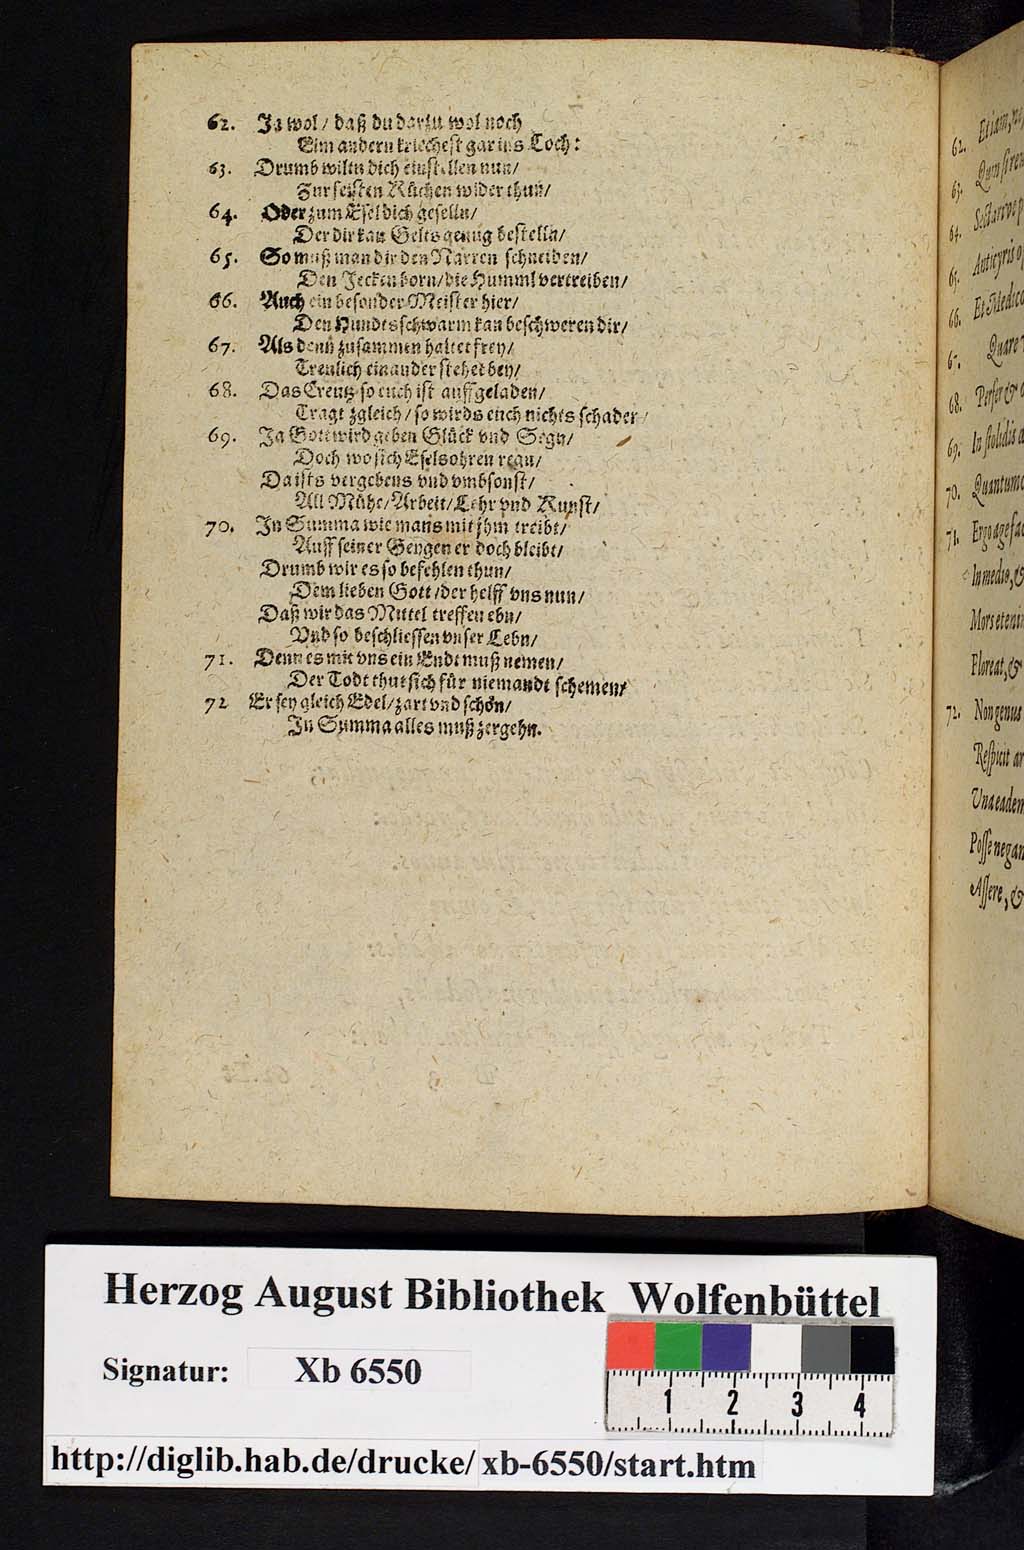 62. Ja wol / daß du darzu wol noch
Eim andern kriechest gar ins Loch:
63. Drumb wiltu dich einstellen nun/
Zur feisten Küchen wider thun/
64. Oder zum Esel dich geselln/
Der dir kan Gelts genug bestelln/
65. So muß man dir den Narren schneiden/
Den Jecken born/die Humml vertreiben/
66. Auch ein besonder Meister hier/
Den Hundtsschwarm kan beschweren dir/
67. Als denn zusammen haltet frey/
Treulich einander stehet bey/
68. Das Creutz so euch ist auffgeladen/
Tragt zgleich / so wirds euch nichts schaden/
69. Ja Gott wird geben Glück vnd Segn/
Doch wo sich Eselsohren regn/
Da ists vergebens vnd vmbsonst/
All Mühe/Arbeit/Lehr vnd Kunst/
70. In Summa wie mans mit jhm treibt/
Auff seiner Geygen er doch bleibt/
Drumb wir es so befehlen thun/
Dem lieben Gott/der helff vns nun/
Daß wir das Mittel treffen ebn/
Vnd so beschliessen vnser Lebn/
71. Denn es mit vns ein Endt muß nemen/
Der Todt thut sich für niemandt schemen/
72 Er sey gleich Edel/zart vnd schön/
In Summa alles muß zergehn.
62. Et iam
63. Quin
64.
65. Anticyris
66. Et Medico
67. Quare
68. Perfer &
69. In stolidis
70. Quantum
71. Ergo age
In medio, &
Mors eteni
Floreat, &
72. Non genus
Respicit ar
Una eadem
Posse negan
Assere, &
Herzog August Bibliothek Wolfenbüttel
Signatur: Xb 6550
1 2 3 4
http://diglib.hab.de/drucke/ xb-6550/start.htm